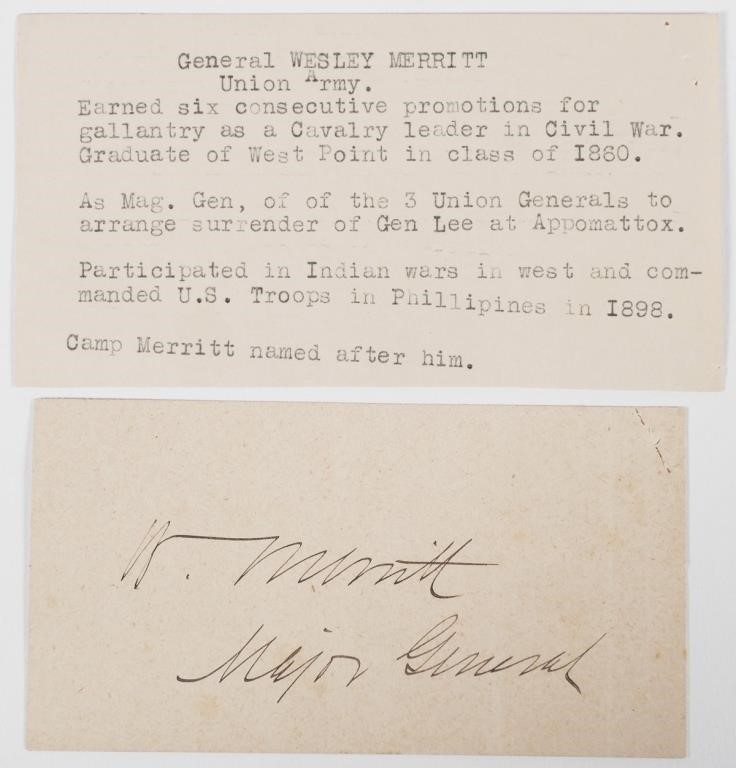 General WESLEY MERRITT
Union Army.
Earned six consecutive promotions for
gallantry as a Cavalry leader in Civil War.
Graduate of West Point in class of I860.
As Mag. Gen, of of the 3 Union Generals to
arrange surrender of Gen Lee at Appomattox.
Participated in Indian wars in west and com-
manded U.S. Troops in Phillipines in I898.
Camp Merritt named after him.
W. Merritt
Major General